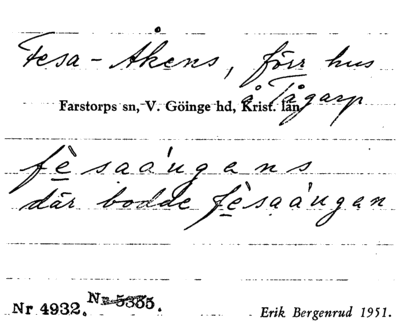 Fesa-Åkens, förr hus
å Tågarp
Farstorps sn, V. Göinge hd, Krist. län
fè̱saáu̇gans
där bodde fè̱saáu̇gan
Nr 4932. Nr 5355.
Erik Bergenrud 1951.